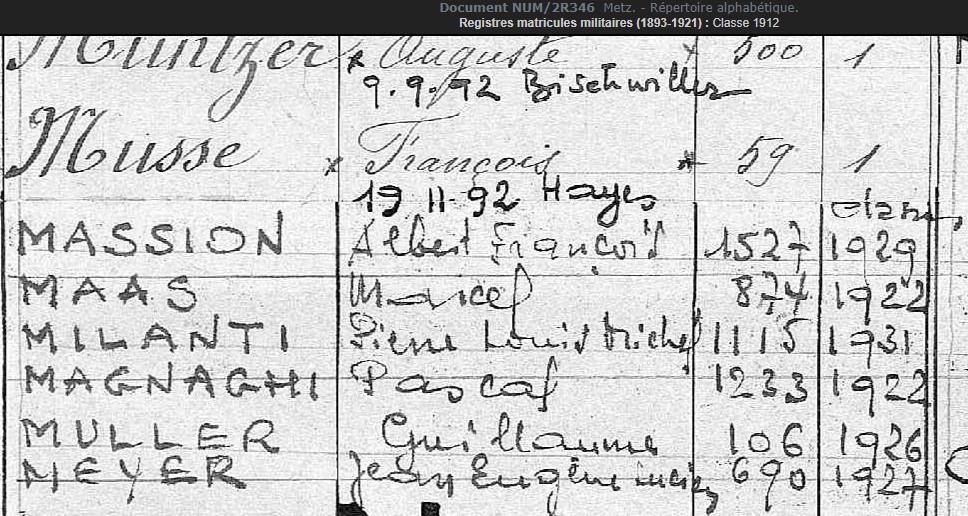 Document NUM/2R346 Metz. - Répertoire alphabétique.
Registres matricules militaires (1893-1921) : Classe 1912
Muntzer x Auguste x 500 1
9.9.92 Bischwiller
Musse x François x 59 1
19 11-92 Hayes
classe
MASSION Albert François 1527 1929
MAAS Marcel 874 1922
MILANTI Pierre Louis Michel 1115 1931
MAGNAGHI Pascal 1233 1922
MULLER Guillaume 106 1926
MEYER Jean Eugène Lucien 690 1927